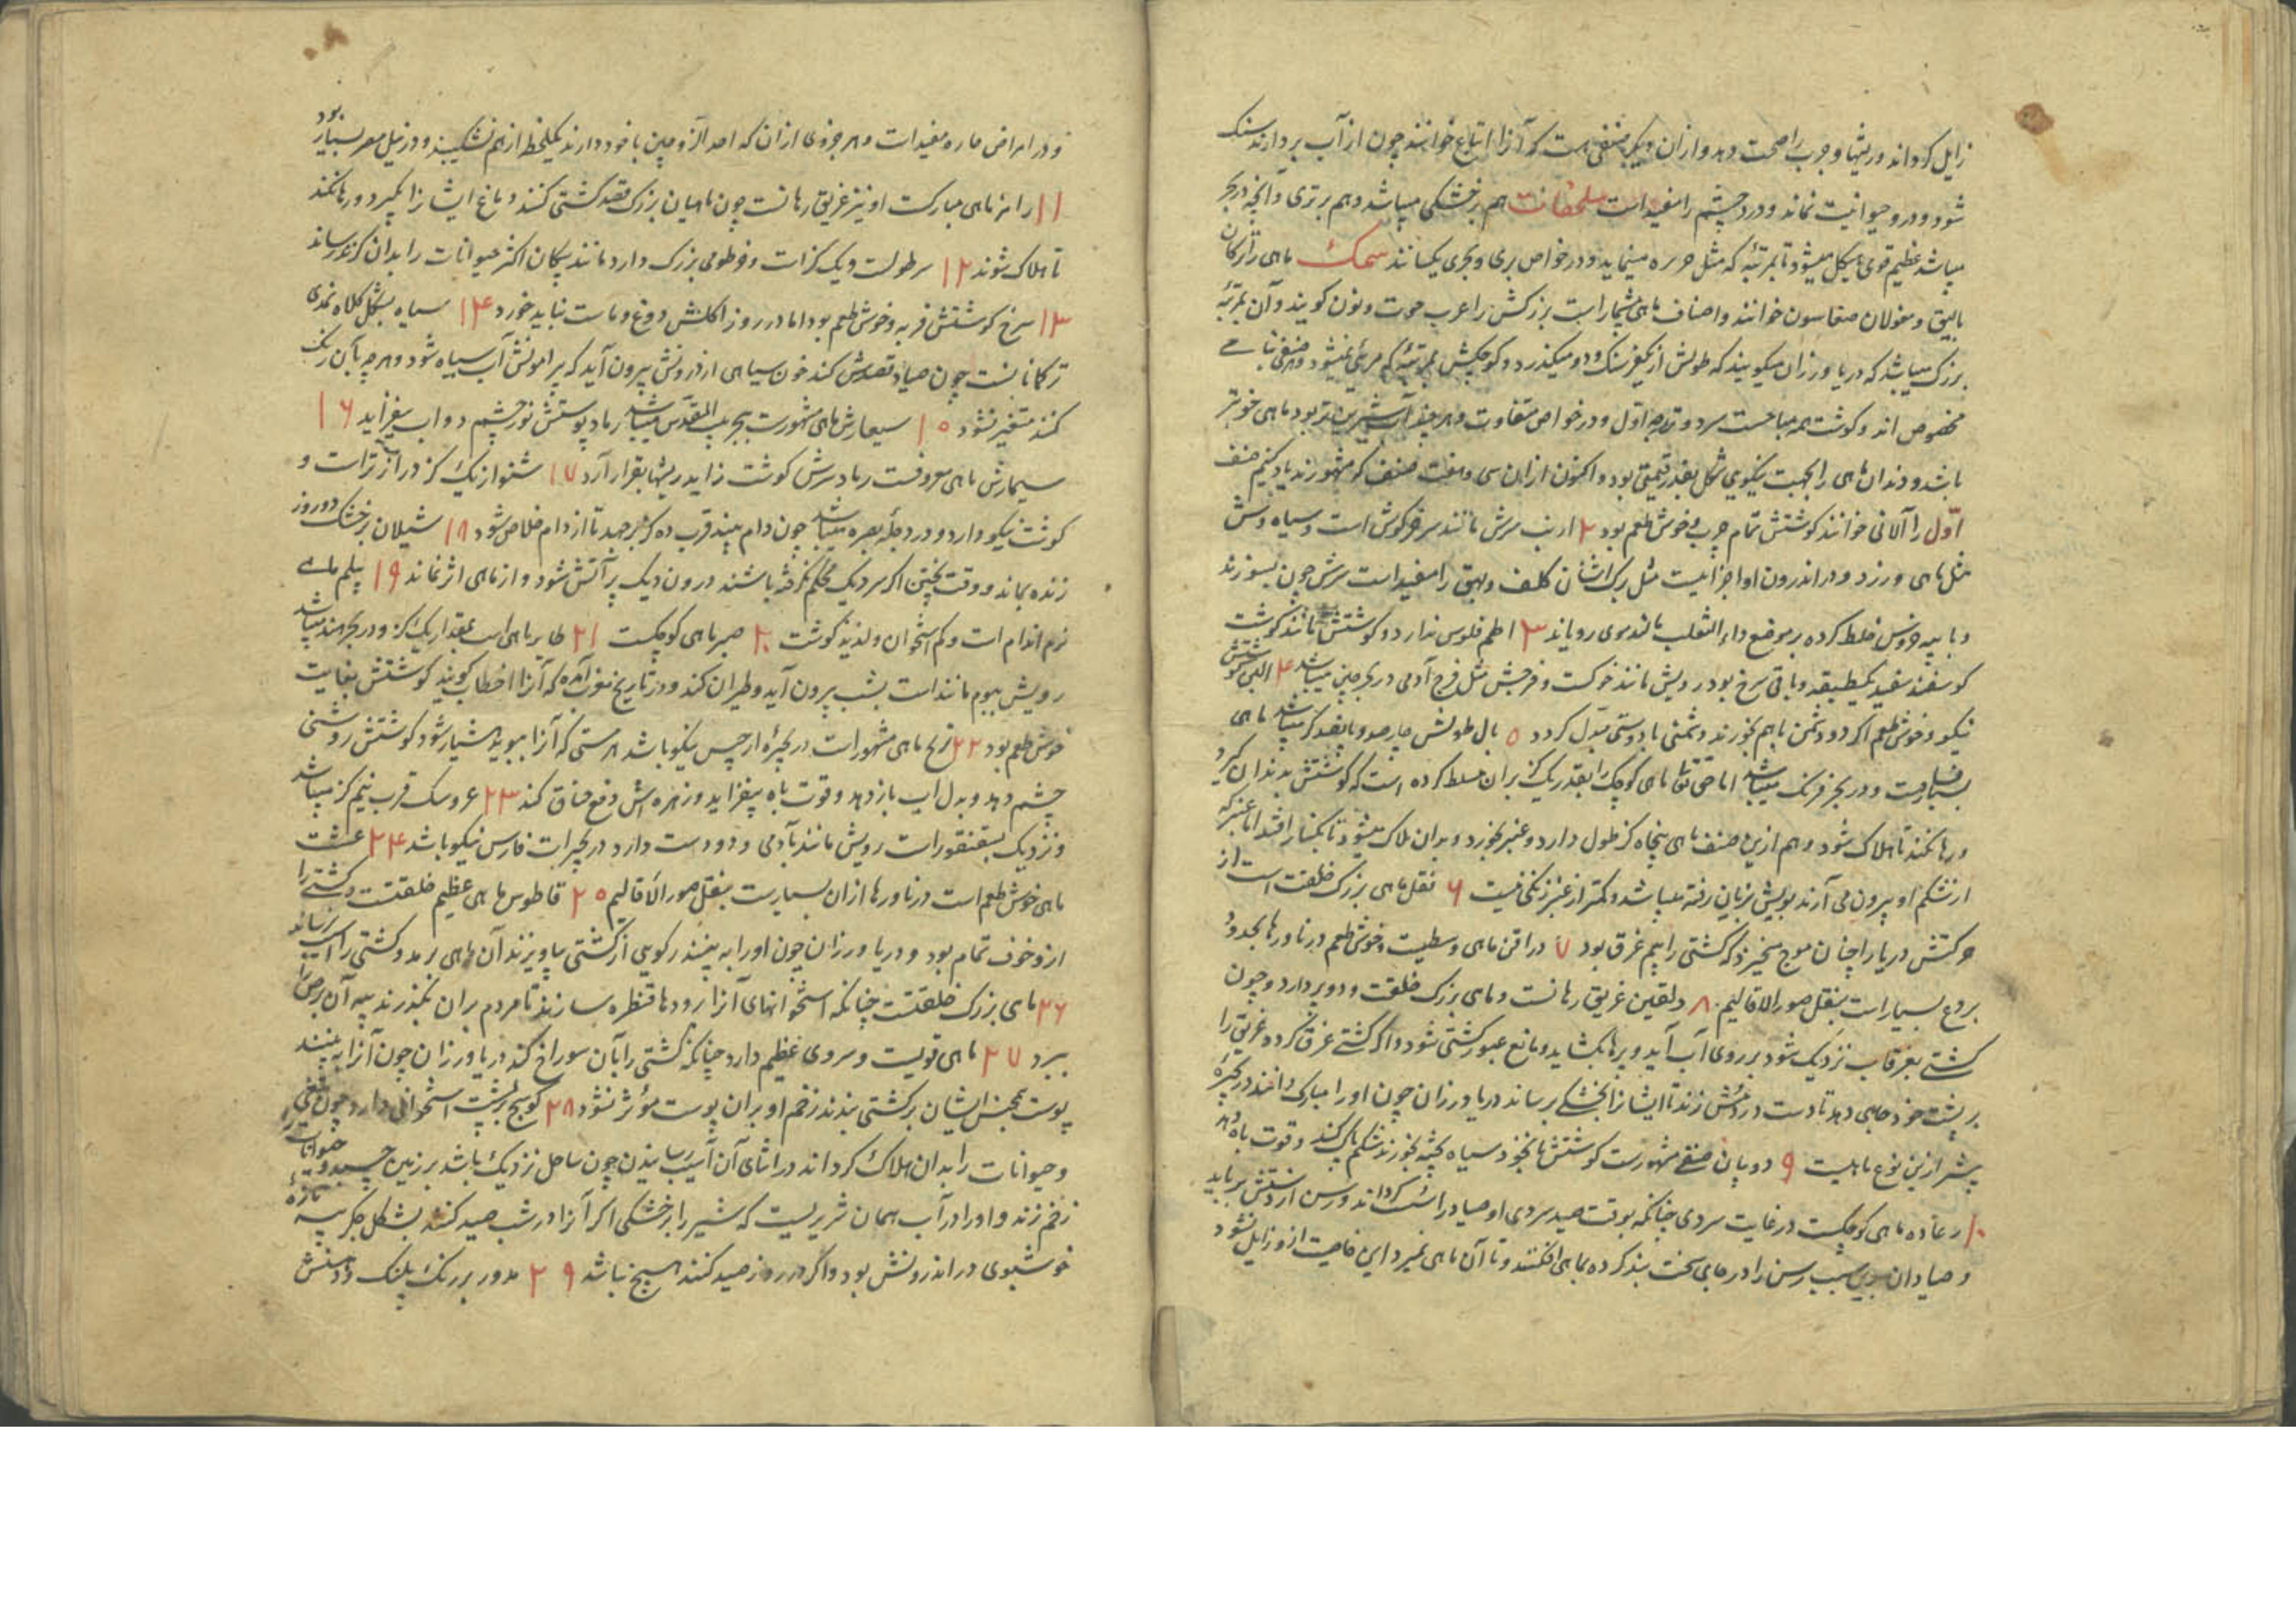 زایل کرداند وریشها و جرب را صحت دهد و از آن دیکر صنفی هست که آنرا اتباع خوانند چون از آب بردارند سنک
شود و درو حیوانیت نماند و درد چشم را مفید است سلحفات هم بر خشکی میباشد و هم بر تری و آنچه در بحر
میباشد عظیم قوی هیکل میشود تا بمرتبه که مثل جزیره مینماید و در خواص بری و بحری یکسانند سمک ماهی را ترکان
بالیق و مغولان خوانند و اصناف ماهی بیشمار است بزرکش را عرب حوت و نون کویند و آن بمرتبه
بزرک میباشد که دریا ورزان میکویند که طولش از یکفرسنک و دو میکذرد و کوچکش بمرتبه که مرئی نمیشود و هر صنفی بنامی
مخصوص اند و کوشت همه مباحست سرد و تر بدرجه اول و در خواص متفاوت و هر چند آب شیرین تر بود ماهی خوشتر
باشد و دندان ماهی را بجهت نیکویی شکل بقدر قیمتی بود و اکنون از آن سی و هفت صنف که مشهورند یاد کنیم صنف
اول را آلانی خوانند کوشتش تمام چرب و خوش طعم بود ۲ ارنب سرش مانند سر خرکوش است و سیاه وش
مثل ماهی ورزد و در اندرون او اجزائیست مثل برک اشنان کلف و بهق را مفید است سرش چون بسوزند
و با پیه خرس خلط کرده بر موضع داء الثعلب مالند موی رویاند ۳ اطم فلوس ندارد و کوشتش مانند کوشت
کوسفند سفید یکطبقه و باقی سرخ بود رویش مانند خوکست و فرجش مثل فرج آدمی در بحر چین میباشد ۴ اللبی کوشتش
نیکو و خوش طعم اکر دو دشمن باهم بخورند دشمنی با دوستی مبدل کردد ۵ بال طولش چارصد و پانصد کز میباشد ماهی
بسیارست و در بحر فرنک میباشد اما حق تعالی ماهی کوچک را بقدر یک کز بران مسلط کرده است که کوشتش بدندان کیرد
و رها نکند تا هلاک شود و هم ازین صنف ماهی پنجاه کز طول دارد و عنبر بخورد و بدان هلاک میشود تا بکنار افتد اما عنبر که
از شکم او بیرون می آرند بویش بزیان رفته میباشد و کمتر از عنبر زنکی نیست ۶ نقل ماهی بزرک خلقت است از
حرکتش دریا را چنان موج میخیزد که کشتی را بیم غرق بود ۷ دراقن ماهی وسطیست و خوش طعم در ناورها بحدود
بردع بسیار است بنقل صور الاقالیم ۸ دلفین غریق رهانست و ماهی بزرک خلقت و دو پر دارد و چون
کشتی بغرقاب نزدیک شود بر روی آب آید و پرها بکشاید و مانع عبور کشتی شود و اکر کشتی غرق کردد غریق را
بر پشت خود جای دهد تا دست در دمش زند تا ایشانرا بخشکی برساند دریا ورزان چون او را مبارک دانند در بحیره
پیشتر ازین نوع ماهیست ۹ دوبیان صنفی مشهورست کوشتش با نخود سیاه پخته بخورند شکم پاک کند و قوت باه دهد
۱۰ رعاده ماهی کوچکست در غایت سردی چنانکه بوقت صید سردی او صیاد را سست کرداند و رسن از دستش برباید
و صیادان بدین سبب رسن را در جای سخت بند کرده بماهی افکنند و تا آن ماهی نمیرد این خاصیت ازو زایل نشود
و در امراض حاره مفید است و هر جزوی از آن که احد الزوجین با خود دارند یکلحظه از هم نشکیبند و در نیل مصر بسیار بود
۱۱ رامز ماهی مبارکست او نیز غریق رهانست چون ماهیان بزرک قصد کشتی کنند دماغ ایشانرا بکیرد و رها نکند
تا هلاک شوند ۱۲ سر طولست و یک کز است و خرطومی بزرک دارد مانند پیکان اکثر حیوانات را بدان کزند رساند
۱۳ سرخ کوشتش فربه و خوش طعم بود اما در روز اکلش دوغ و ماست نباید خورد ۱۴ سیاه بشکل کلاه نمدی
ترکمانانست چون صیاد قصدش کند خون سیاهی از درونش بیرون آید که پیرامونش آب سیاه شود و هر چه بآن رنک
کنند متغیر نشود ۱۵ سیعارش ماهی مشهورست ببحر بیت المقدس میباشد رماد پوستش نور چشم دواب بیفزاید ۱۶
سیمارش ماهی معروفست رماد سرش کوشت زاید ریشها بقرار آرد ۱۷ شنوا از یک کز دراز تر است و
کوشت نیکو دارد و در دجله بصره میباشد چون دام بیند قرب ده کز برجهد تا از دام خلاص شود ۱۸ شیلان بر خشک دو روز
زنده بماند و وقت پختن اکر سر دیک محکم نکرفته باشند درون دیک پر آتش شود و از ماهی اثر نماند ۱۹ پیلم ماهی
نرم اندام است و کم استخوان و لذیذ کوشت ۲۰ صیر ماهی کوچکست ۲۱ طایر ماهی است بمقدار یک کز و در بحر هند میباشد
رویش ببوم مانند است بشب بیرون آید و طیران کند و در تاریخ مغرب آمده که آنرا خطاب کویند کوشتش بغایت
خوش طعم بود ۲۲ ترنج ماهی مشهور است در بحیره ارجیس نیکو باشد هر مستی که آنرا ببوید هشیار شود کوشتش روشنی
چشم دهد و بدل اب باز دهد و قوت باه بیفزاید و زهره اش دفع خناق کند ۲۳ عروسک قرب نیم کز میباشد
و نزدیک بسقنقور است رویش مانند بآدمی و دو دست دارد در بحیرات فارس نیکو باشد ۲۴ عشت
ماهی خوش طعم است در ناورها از آن بسیارست بنقل صور الاقالیم ۲۵ قاطوس ماهی عظیم خلقتست و کشتی را
ازو خوف تمام بود و دریا ورزان چون او را به بینند رکویی از کشتی بیاویزند آن ماهی برمد و کشتی را آسیب نرساند
۲۶ ماهی بزرک خلقتست چنانکه استخوانهای آنرا برودها قنطره سازند تا مردم بران بکذرند پیه آن برص را
ببرد ۲۷ ماهی قویست و سروی عظیم دارد چنانکه کشتی را بآن سوراخ کند دریا ورزان چون آنرا به بینند
پوست همجنس ایشان بر کشتی بندند زخم او بران پوست مؤثر نشود ۲۸ کوسج بر پشت استخوانی دارد چون تیغی
و حیوانات را بدان هلاک کرداند در اثنای آن آسیب رسانیدن چون ساحل نزدیک باشد بر زمین چسبد و حیوانات
زخم زند و او را در آب همان شریریست که شیر را بر خشکی اکر آنرا در شب صید کنند بشکل جکر پیه تازه
خوشبوی در اندرونش بود و اکر در روز صید کنند هیچ نباشد ۲۹ مدور بر رنک پلنک و دمش